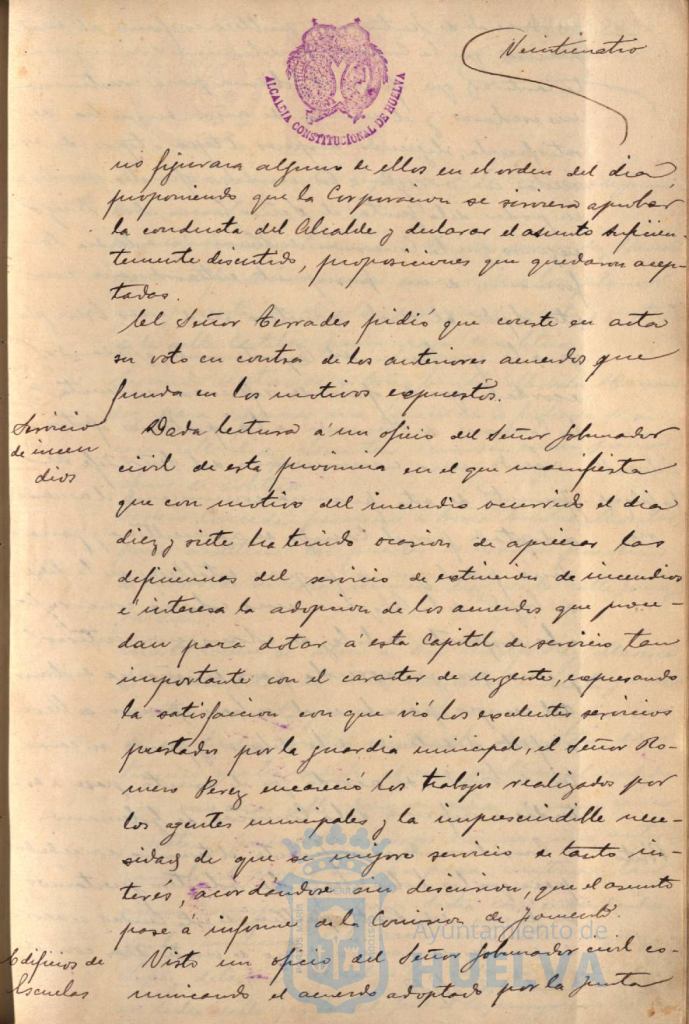 Veinticuatro
ALCALDIA CONSTITUCIONAL DE HUELVA
no figurara alguno de ellos en el orden del dia
proponiendo que la Corporacion se sirviera aprobar
la conducta del Alcalde y declarar el asunto suficien-
temente discutido, proposiciones que quedaron acep-
tadas.
El Señor Terrades pidió que conste en acta
su voto en contra de los anteriores acuerdos que
funda en los motivos expuestos.
Servicio
de incen
dios
Dada lectura á un oficio del Señor Gobernador
civil de esta provincia en el que manifiesta
que con motivo del incendio ocurrido el dia
diez y siete ha tenido ocasion de apreciar las
deficiencias del servicio de extincion de incendios
é interesa la adopcion de los acuerdos que proce-
dan para dotar á esta Capital de servicio tan
importante con el caracter de urgente, expresando
la satisfaccion con que vió los excelentes servicios
prestados por la guardia municipal, el Señor Ro-
mero Perez encareció los trabajos realizados por
los agentes municipales y la imprescindible nece-
sidad de que se mejore servicio de tanto in-
terés, acordándose sin discusion, que el asunto
pase á informe de la Comision de fomento.
Edificios de
Escuelas
Visto un oficio del Señor Gobernador civil co-
municando el acuerdo adoptado por la Junta
Ayuntamiento de
HUELVA